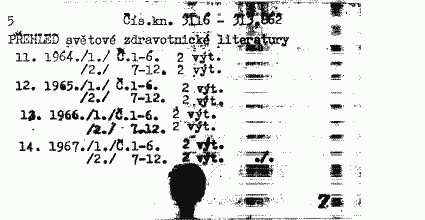 5 Čís.kn. 3116 - 313.862
PŘEHLED světové zdravotnické literatury
11. 1964./1./ Č.1-6. 2 výt.
/2./ 7-12. 2 výt.
12. 1965./1./ Č.1-6. 2 výt.
/2./ 7-12. 2 výt.
13. 1966./1./Č.1-6. 2 výt.
/2./ 7-12. 2 výt.
14. 1967./1./Č.1-6. 2 výt.
/2./ 7-12. 2 výt. ./.
Z